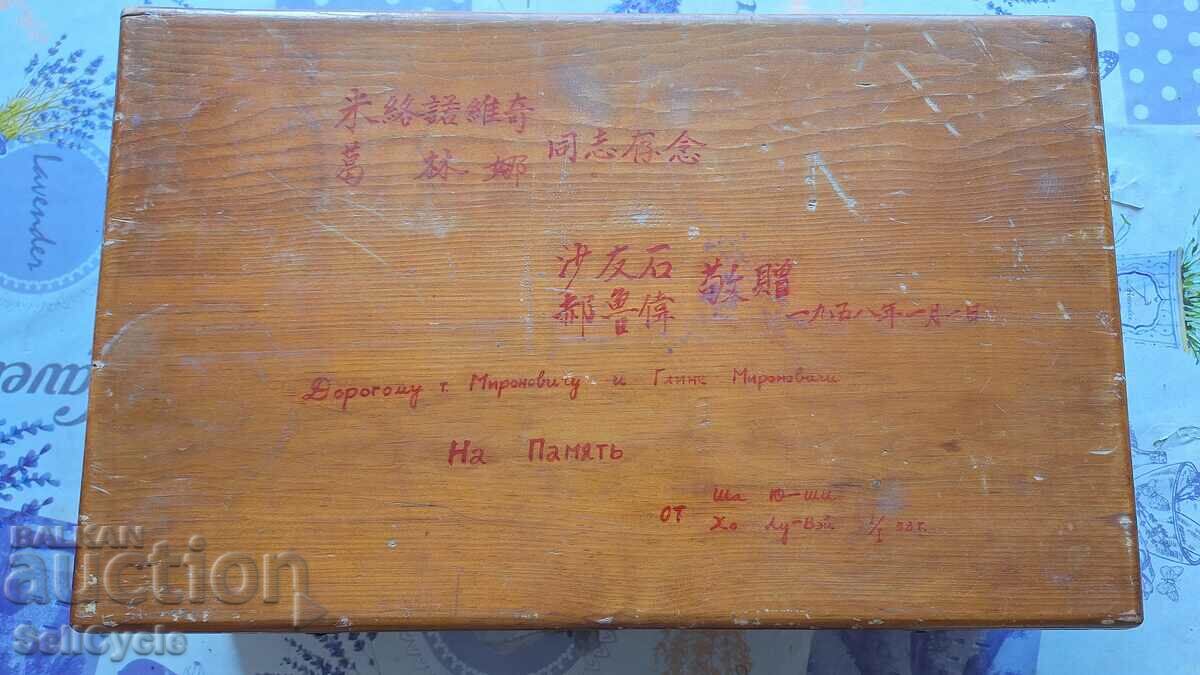 米絡諾維奇
葛林娜 同志存念
沙友石
郝魯偉 敬贈 一九五八年一月一日
Дорогому т. Мироновичу и Глине Мироновичи
На Память
от Ша Ю-ши
Хо Лу-Вэй 1/I 58г.
BALKAN
auction
SellCycle
Lavender